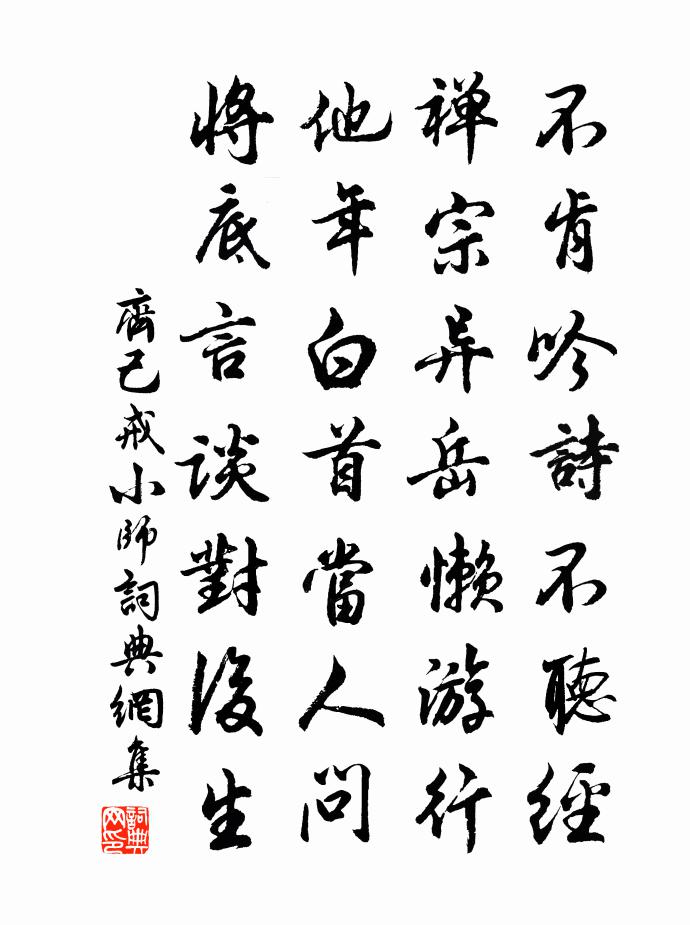 不肯吟詩不聽經
禅宗异岳懒游行
他年白首當人問
將底言談對後生
齊己戒小師詞典網集
詞典网印